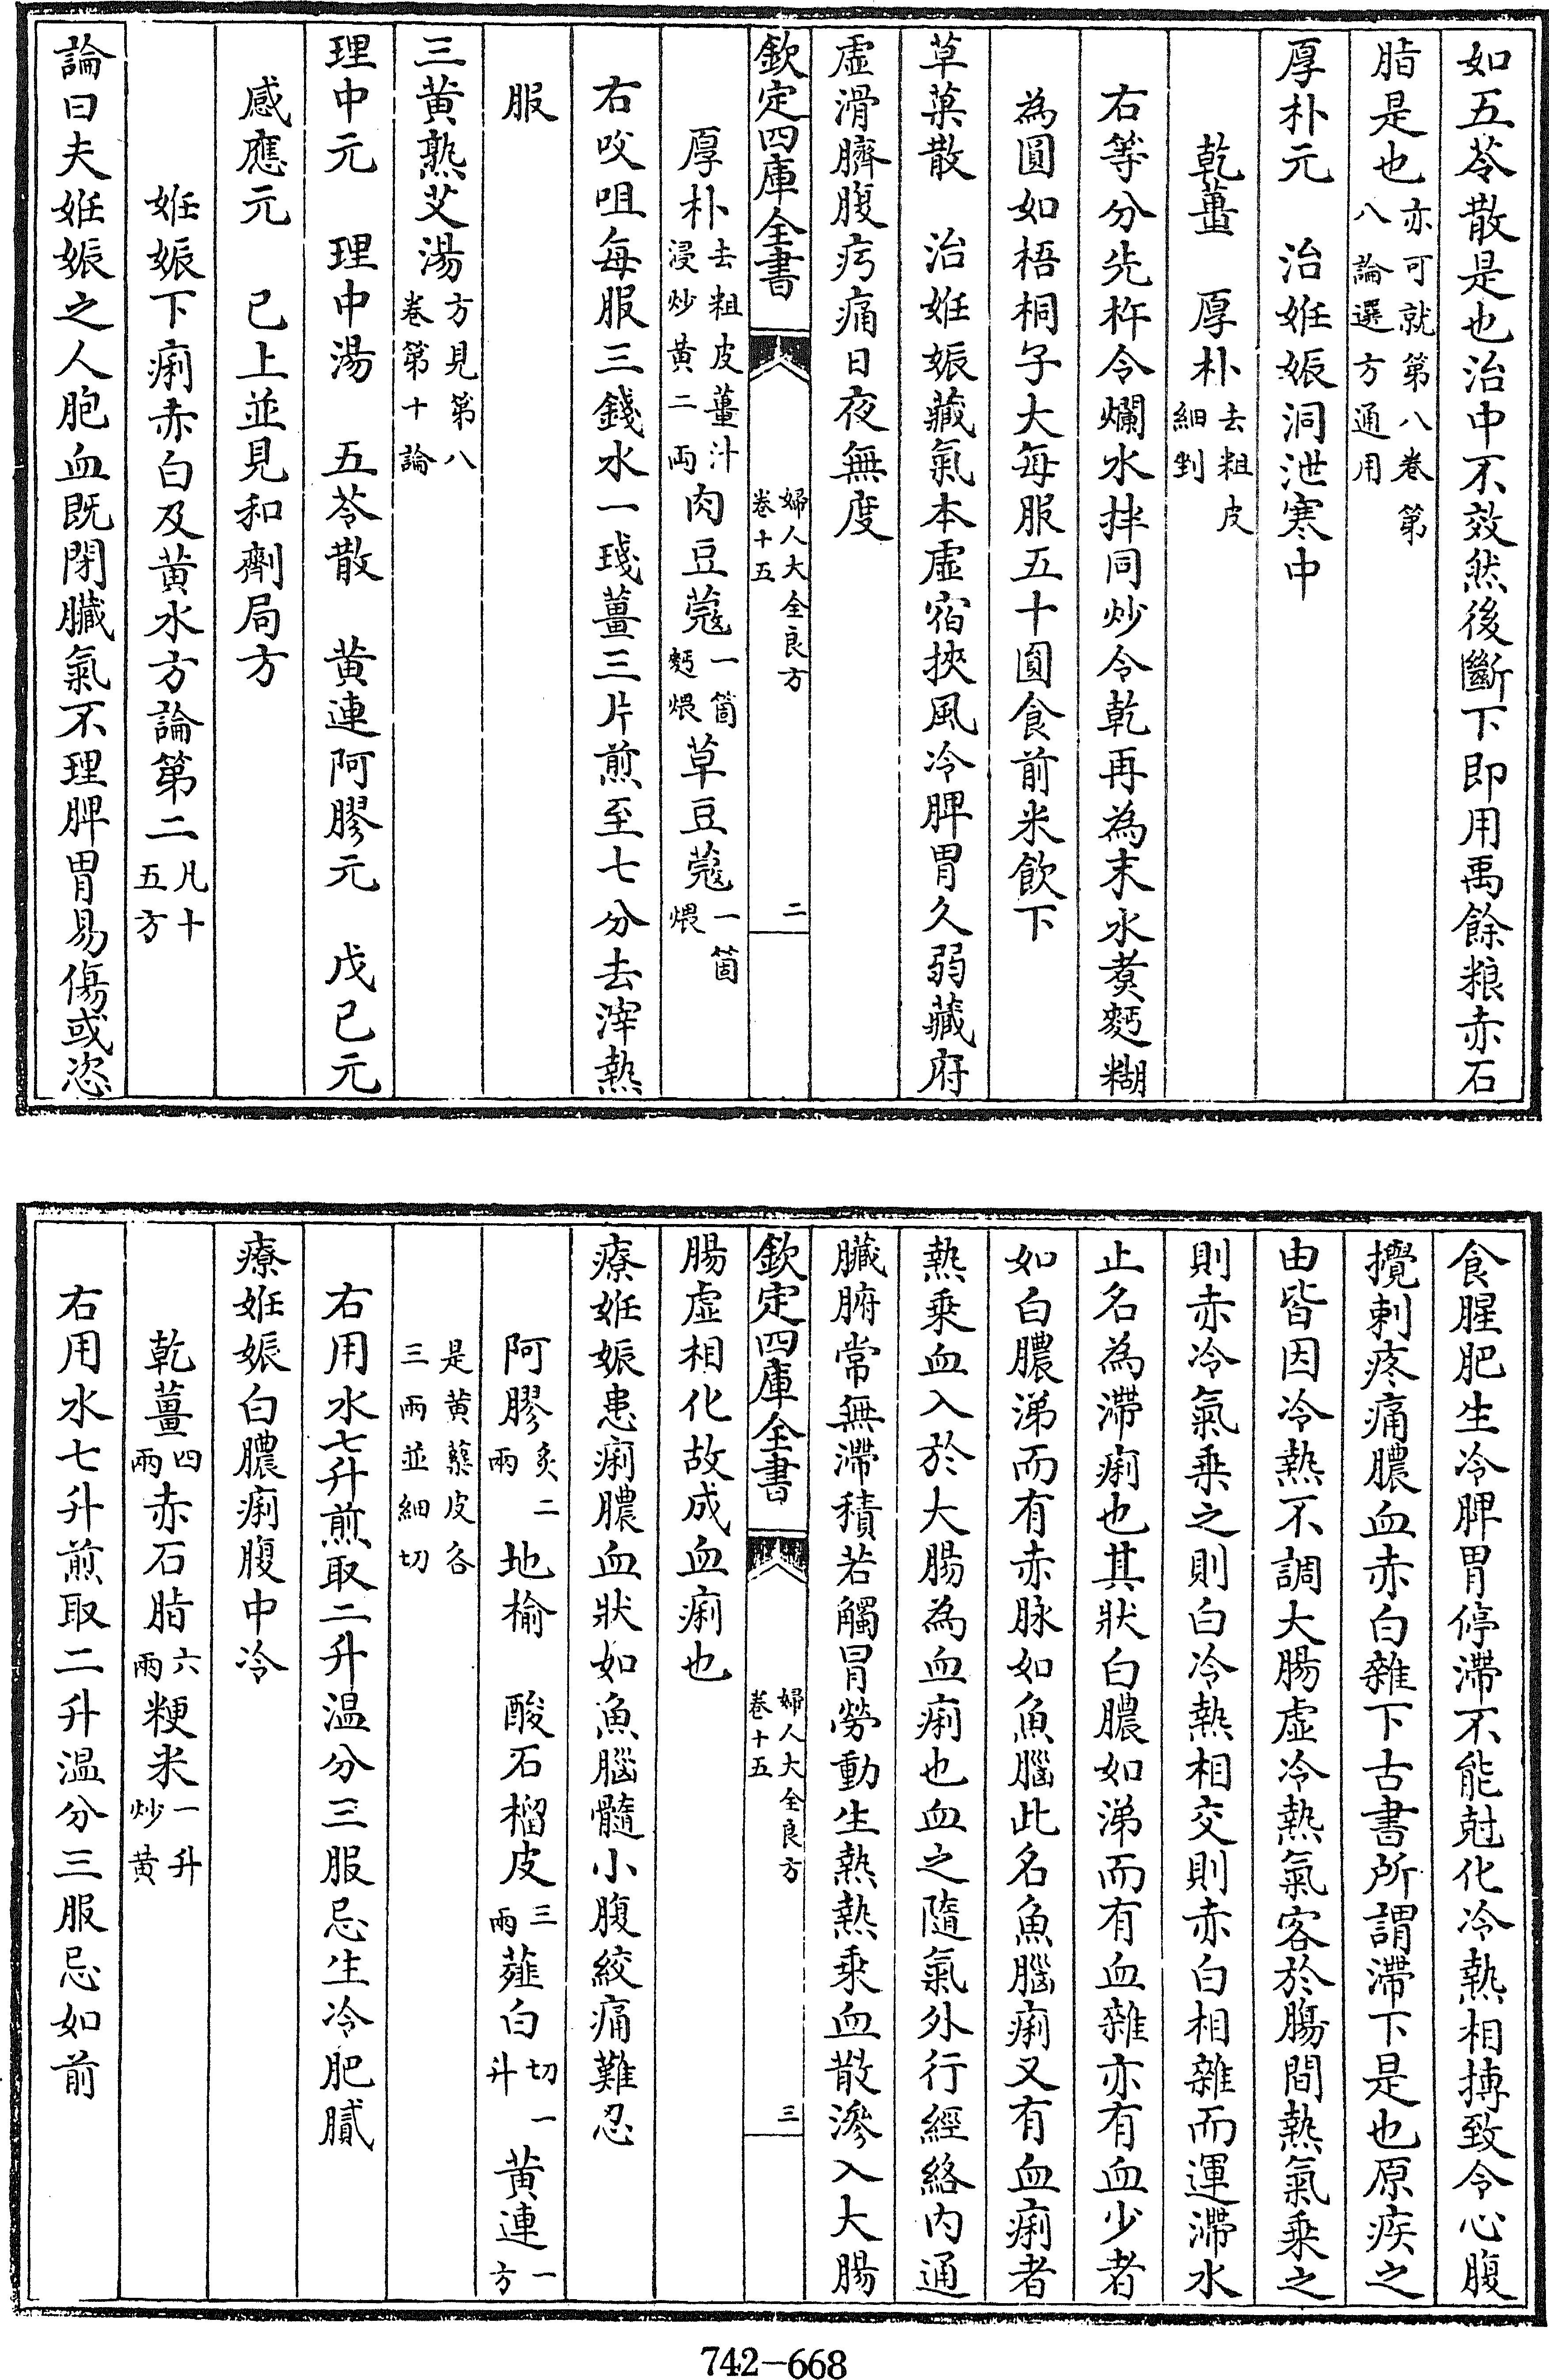 如五苓散是也治中不效然後斷下即用禹餘粮赤石
脂是也亦可就第八卷第八論選方通用
厚朴元　治姙娠洞泄寒中
乾薑　厚朴去粗皮細剉
右等分先杵令爛水拌同炒令乾再為末水煑麫糊
為圓如梧桐子大每服五十圓食前米飲下
草菓散　治姙娠藏氣本虛宿挾風冷脾胃久弱藏府
虛滑臍腹㽲痛日夜無度
欽定四庫全書　婦人大全良方卷十五　二
厚朴去粗皮薑汁浸炒黄二兩肉豆蔻一箇麫煨草豆蔻一箇煨
右㕮咀每服三錢水一琖薑三片煎至七分去滓熱
服
三黄熟艾湯方見第八卷第十論
理中元　理中湯　五苓散　黄連阿膠元　戊已元
感應元　已上並見和劑局方
姙娠下痢赤白及黄水方論第二凡十五方
論曰夫姙娠之人胞血既閉臟氣不理脾胃易傷或恣
食腥肥生冷脾胃停滯不能尅化冷熱相搏致令心腹
攪刺疼痛膿血赤白雜下古書所謂滯下是也原疾之
由皆因冷熱不調大腸虛冷熱氣客於腸間熱氣乗之
則赤冷氣乗之則白冷熱相交則赤白相雜而運滯水
止名為滯痢也其狀白膿如涕而有血雜亦有血少者
如白膿涕而有赤脉如魚腦此名魚腦痢又有血痢者
熱乗血入於大腸為血痢也血之隨氣外行經絡内通
臟腑常無滯積若觸冒勞動生熱熱乗血散滲入大腸
欽定四庫全書　婦人大全良方卷十五　三
腸虛相化故成血痢也
療姙娠患痢膿血狀如魚腦髓小腹絞痛難忍
阿膠炙二兩地榆　酸石榴皮三兩薤白切一升黄連一方
是黄蘖皮各三兩並細切
右用水七升煎取二升温分三服忌生冷肥膩
療姙娠白膿痢腹中冷
乾薑四兩赤石脂六兩粳米一升炒黄
右用水七升煎取二升温分三服忌如前
742—668